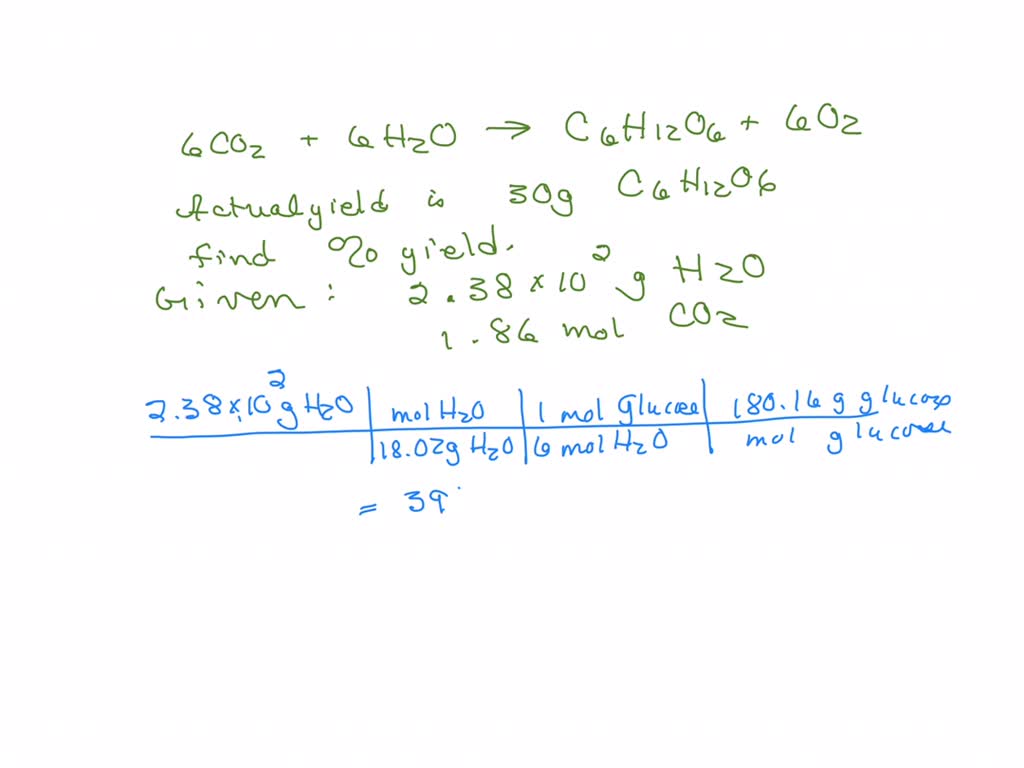 6CO2 + 6H2O → C6H12O6 + 6O2
Actual yield is 30g C6H12O6
find % yield.
Given: 2.38 × 10^2 g H2O
1.86 mol CO2
2.38×10^2 g H2O | mol H2O | 1 mol Glucose | 180.16 g glucose
18.02g H2O | 6 mol H2O | mol glucose
= 39